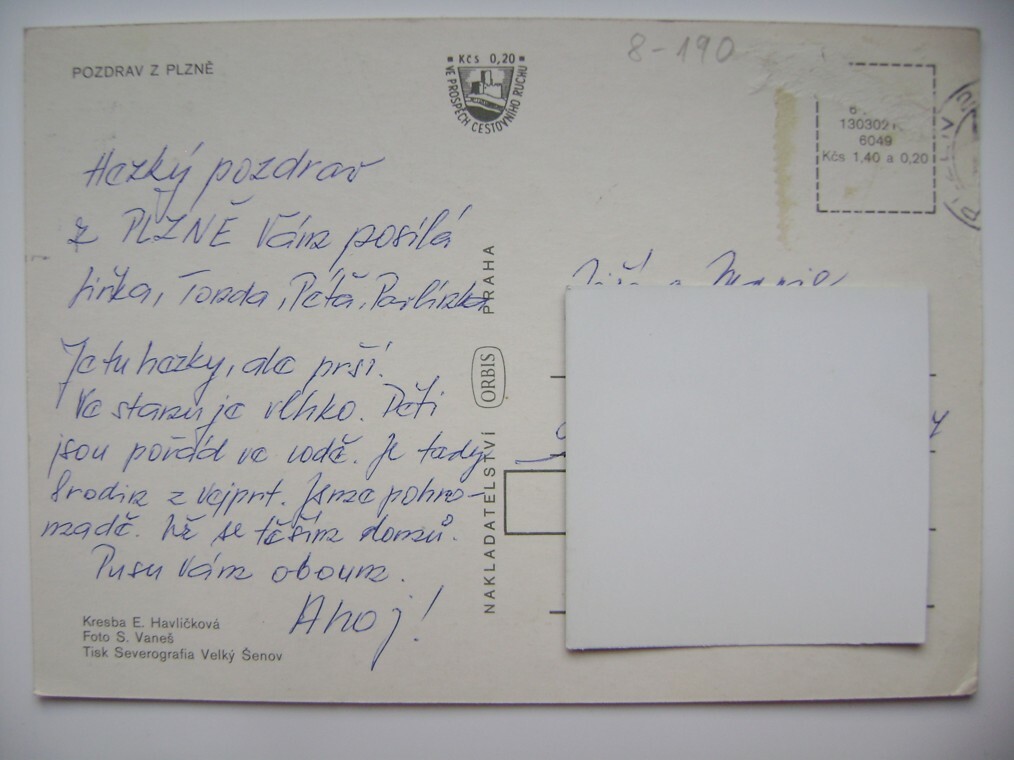 8-190
POZDRAV Z PLZNĚ
Kčs 0,20
VE PROSPĚCH CESTOVNÍHO RUCHU
130302
6049
Kčs 1,40 a 0,20
Hezký pozdrav
z PLZNĚ Vám posílá
Jirka, Tonda, Péťa, Pavlínka
Je tu hezky, ale prší.
Ve stanu je vlhko. Děti
jsou pořád ve vodě. Je tady
8 rodin z Vejprt. Jsme pohro-
madě. Už se těším domů.
Pusu Vám oboum.
Ahoj!
NAKLADATELSTVÍ ORBIS PRAHA
Kresba E. Havlíčková
Foto S. Vaneš
Tisk Severografia Velký Šenov